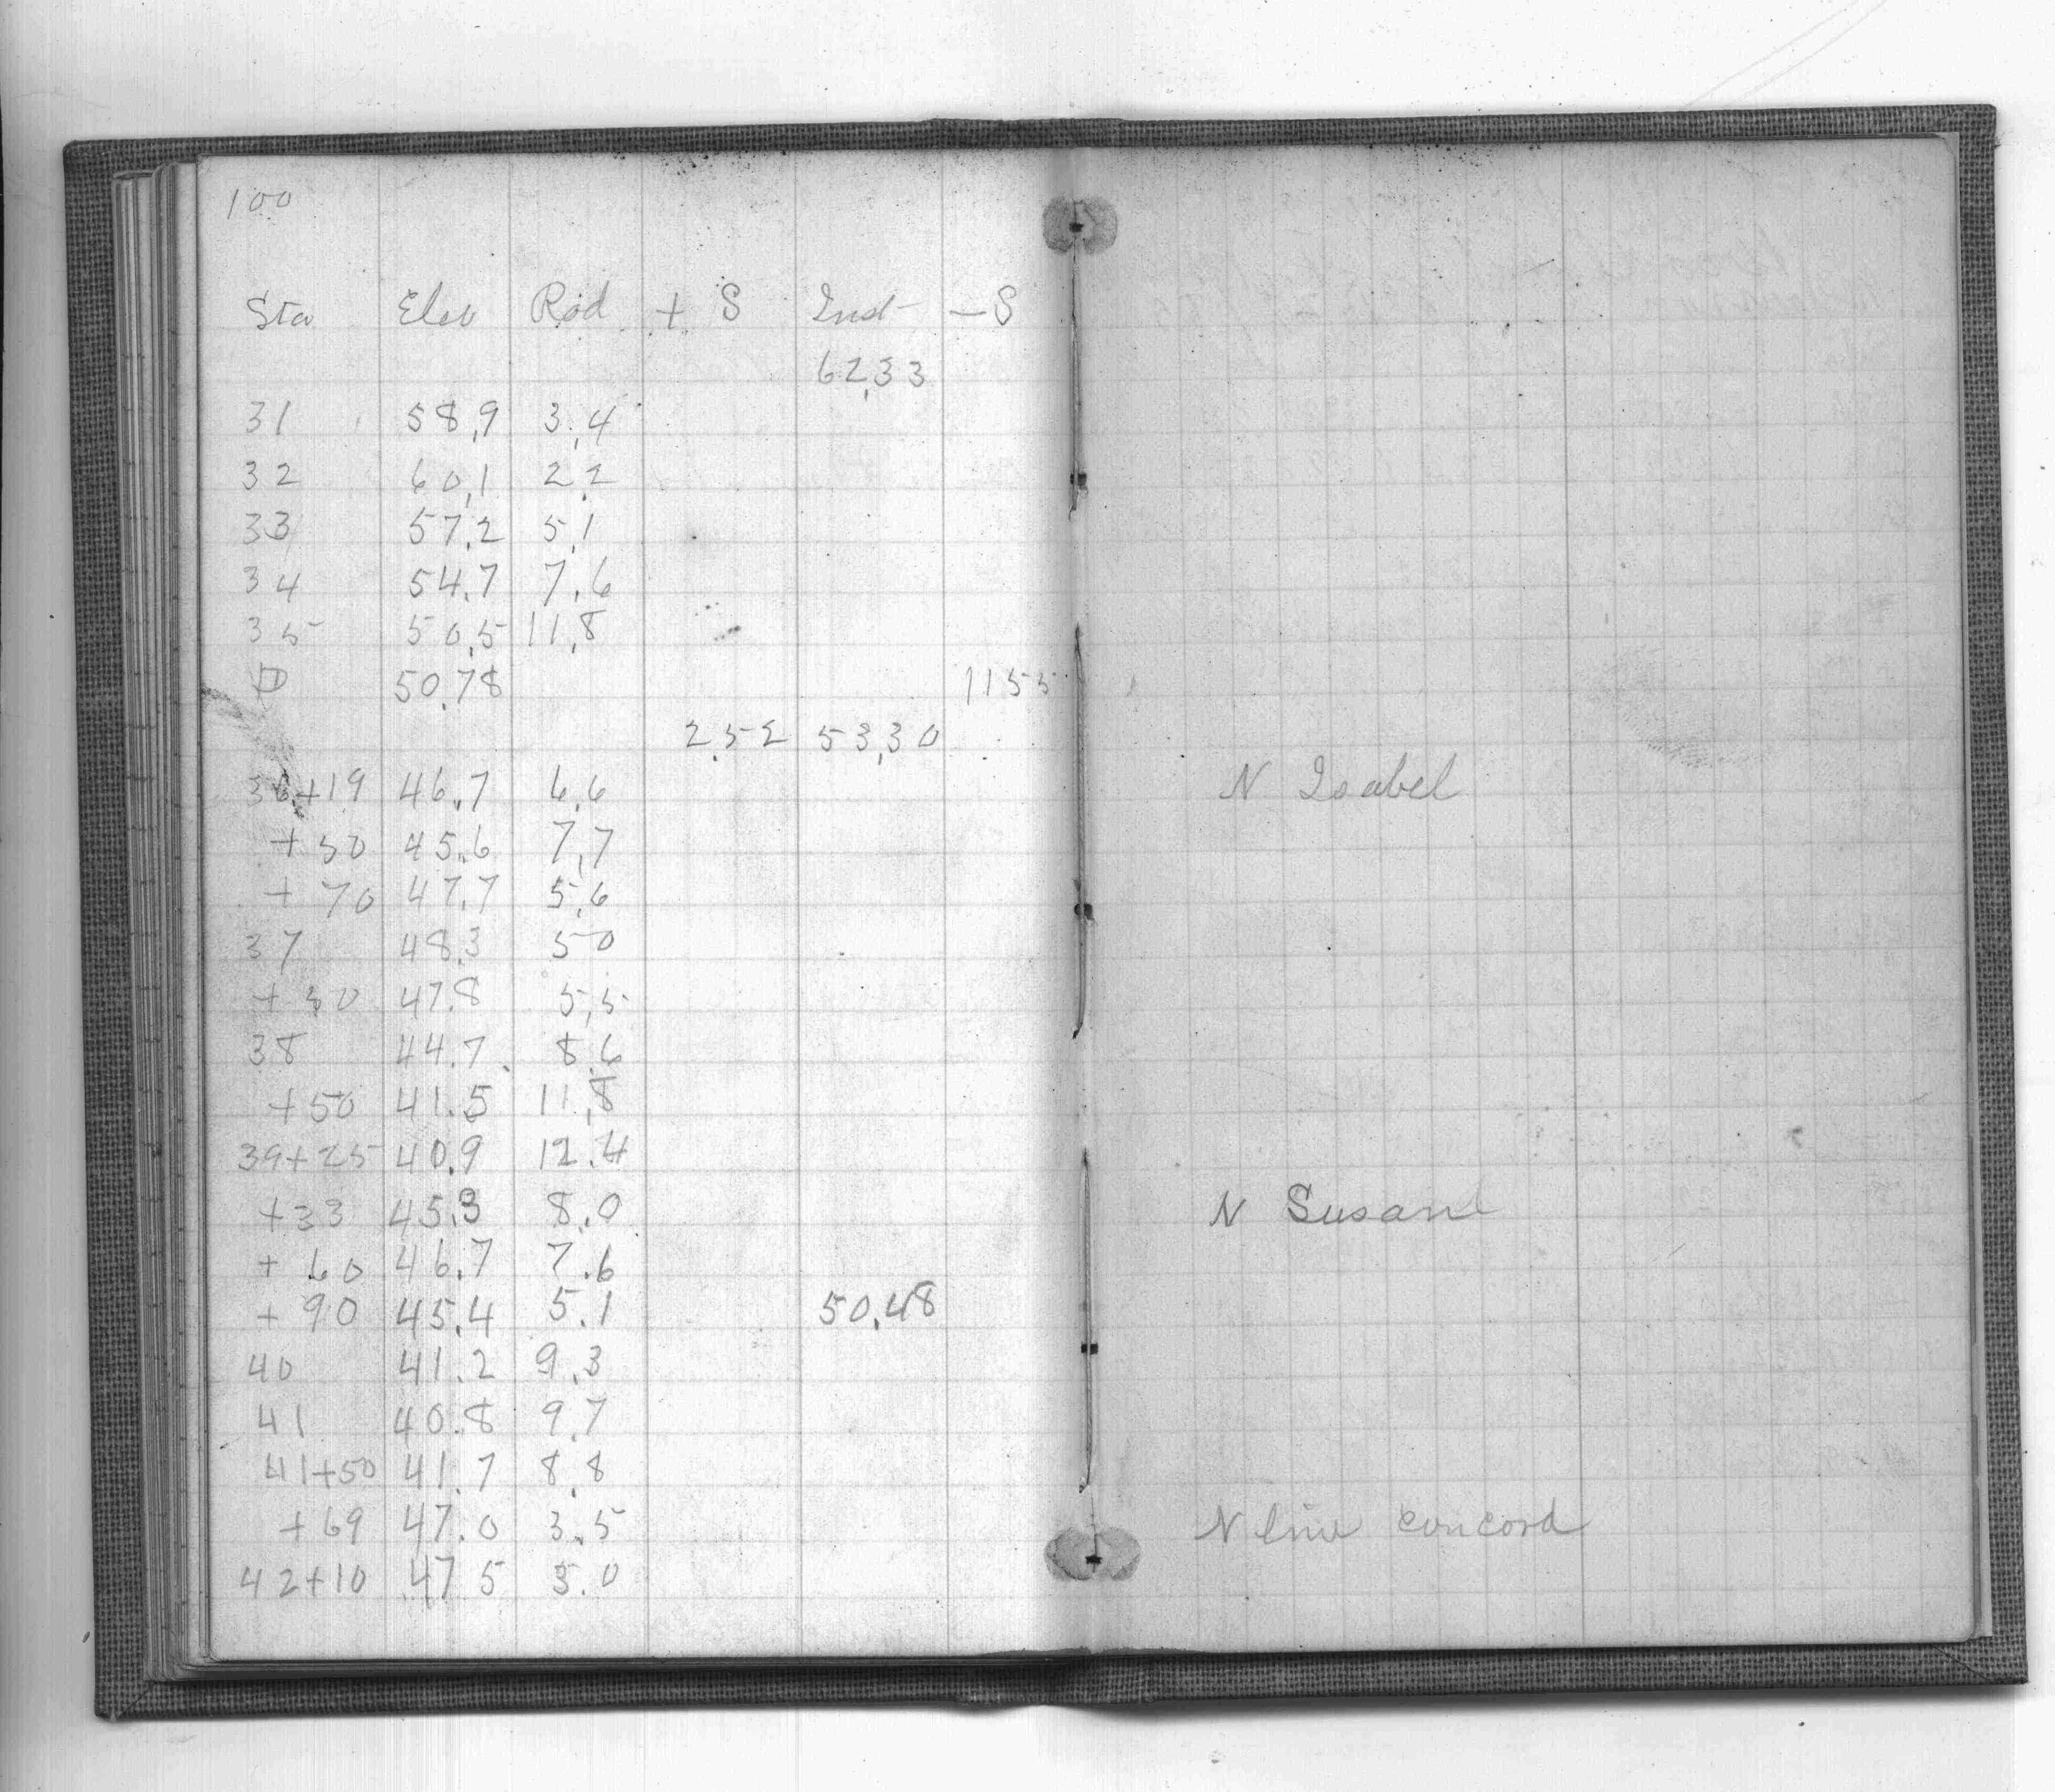 100
Sta Elev Rod + S Inst - S
62,33
31 58,9 3,4
32 60,1 2,2
33 57,2 5,1
34 54,7 7,6
35 50,5 11,8
50,78 1155
2,52 53,30
36+19 46,7 6,6 N Isabel
+50 45,6 7,7
+ 70 47,7 5,6
37 48.3 50
+50 47.8 5,5
38 44.7 8,6
+50 41.5 11,8
39+25 40,9 12.4
+33 45,3 8,0 N Susan
+ 60 46,7 7.6
+ 90 45,4 5.1 50,48
40 41.2 9,3
41 40.8 9,7
41+50 41.7 8,8
+69 47.0 3,5 N line concord
42+10 47 5 3.0